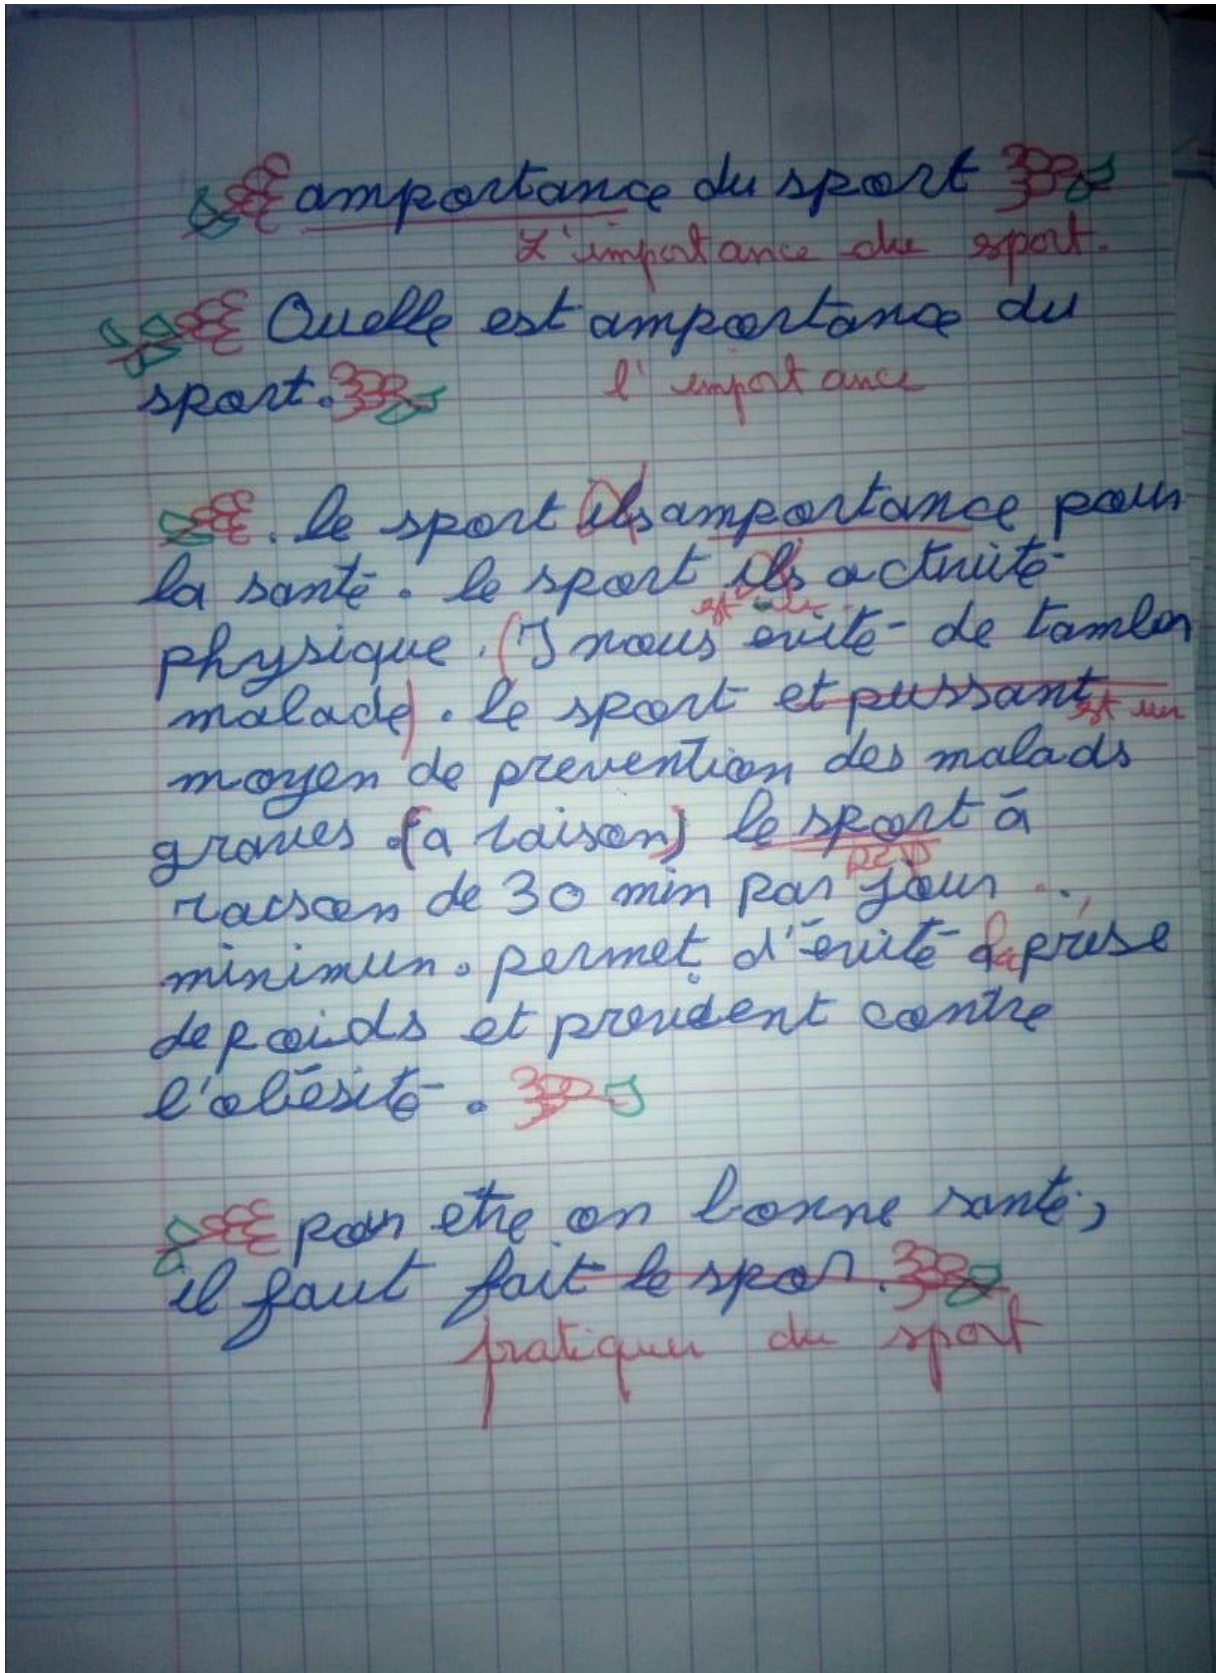 amportance du sport
L'importance du sport.
Quelle est amportance du
l'importance
sport.
. le sport ils amportance pour
la santé. le sport ils activité
est une
physique. (I nous évité de tamber
malade). le sport et pussant
est un
moyen de prevention des malads
graves. (a raison) le sport à
raison de 30 min par jour
minimun. permet d'évité la prise
de poids et previdént contre
l'obésité.
pour etre on bonne santé,
il faut fait le spor.
pratiquer du sport